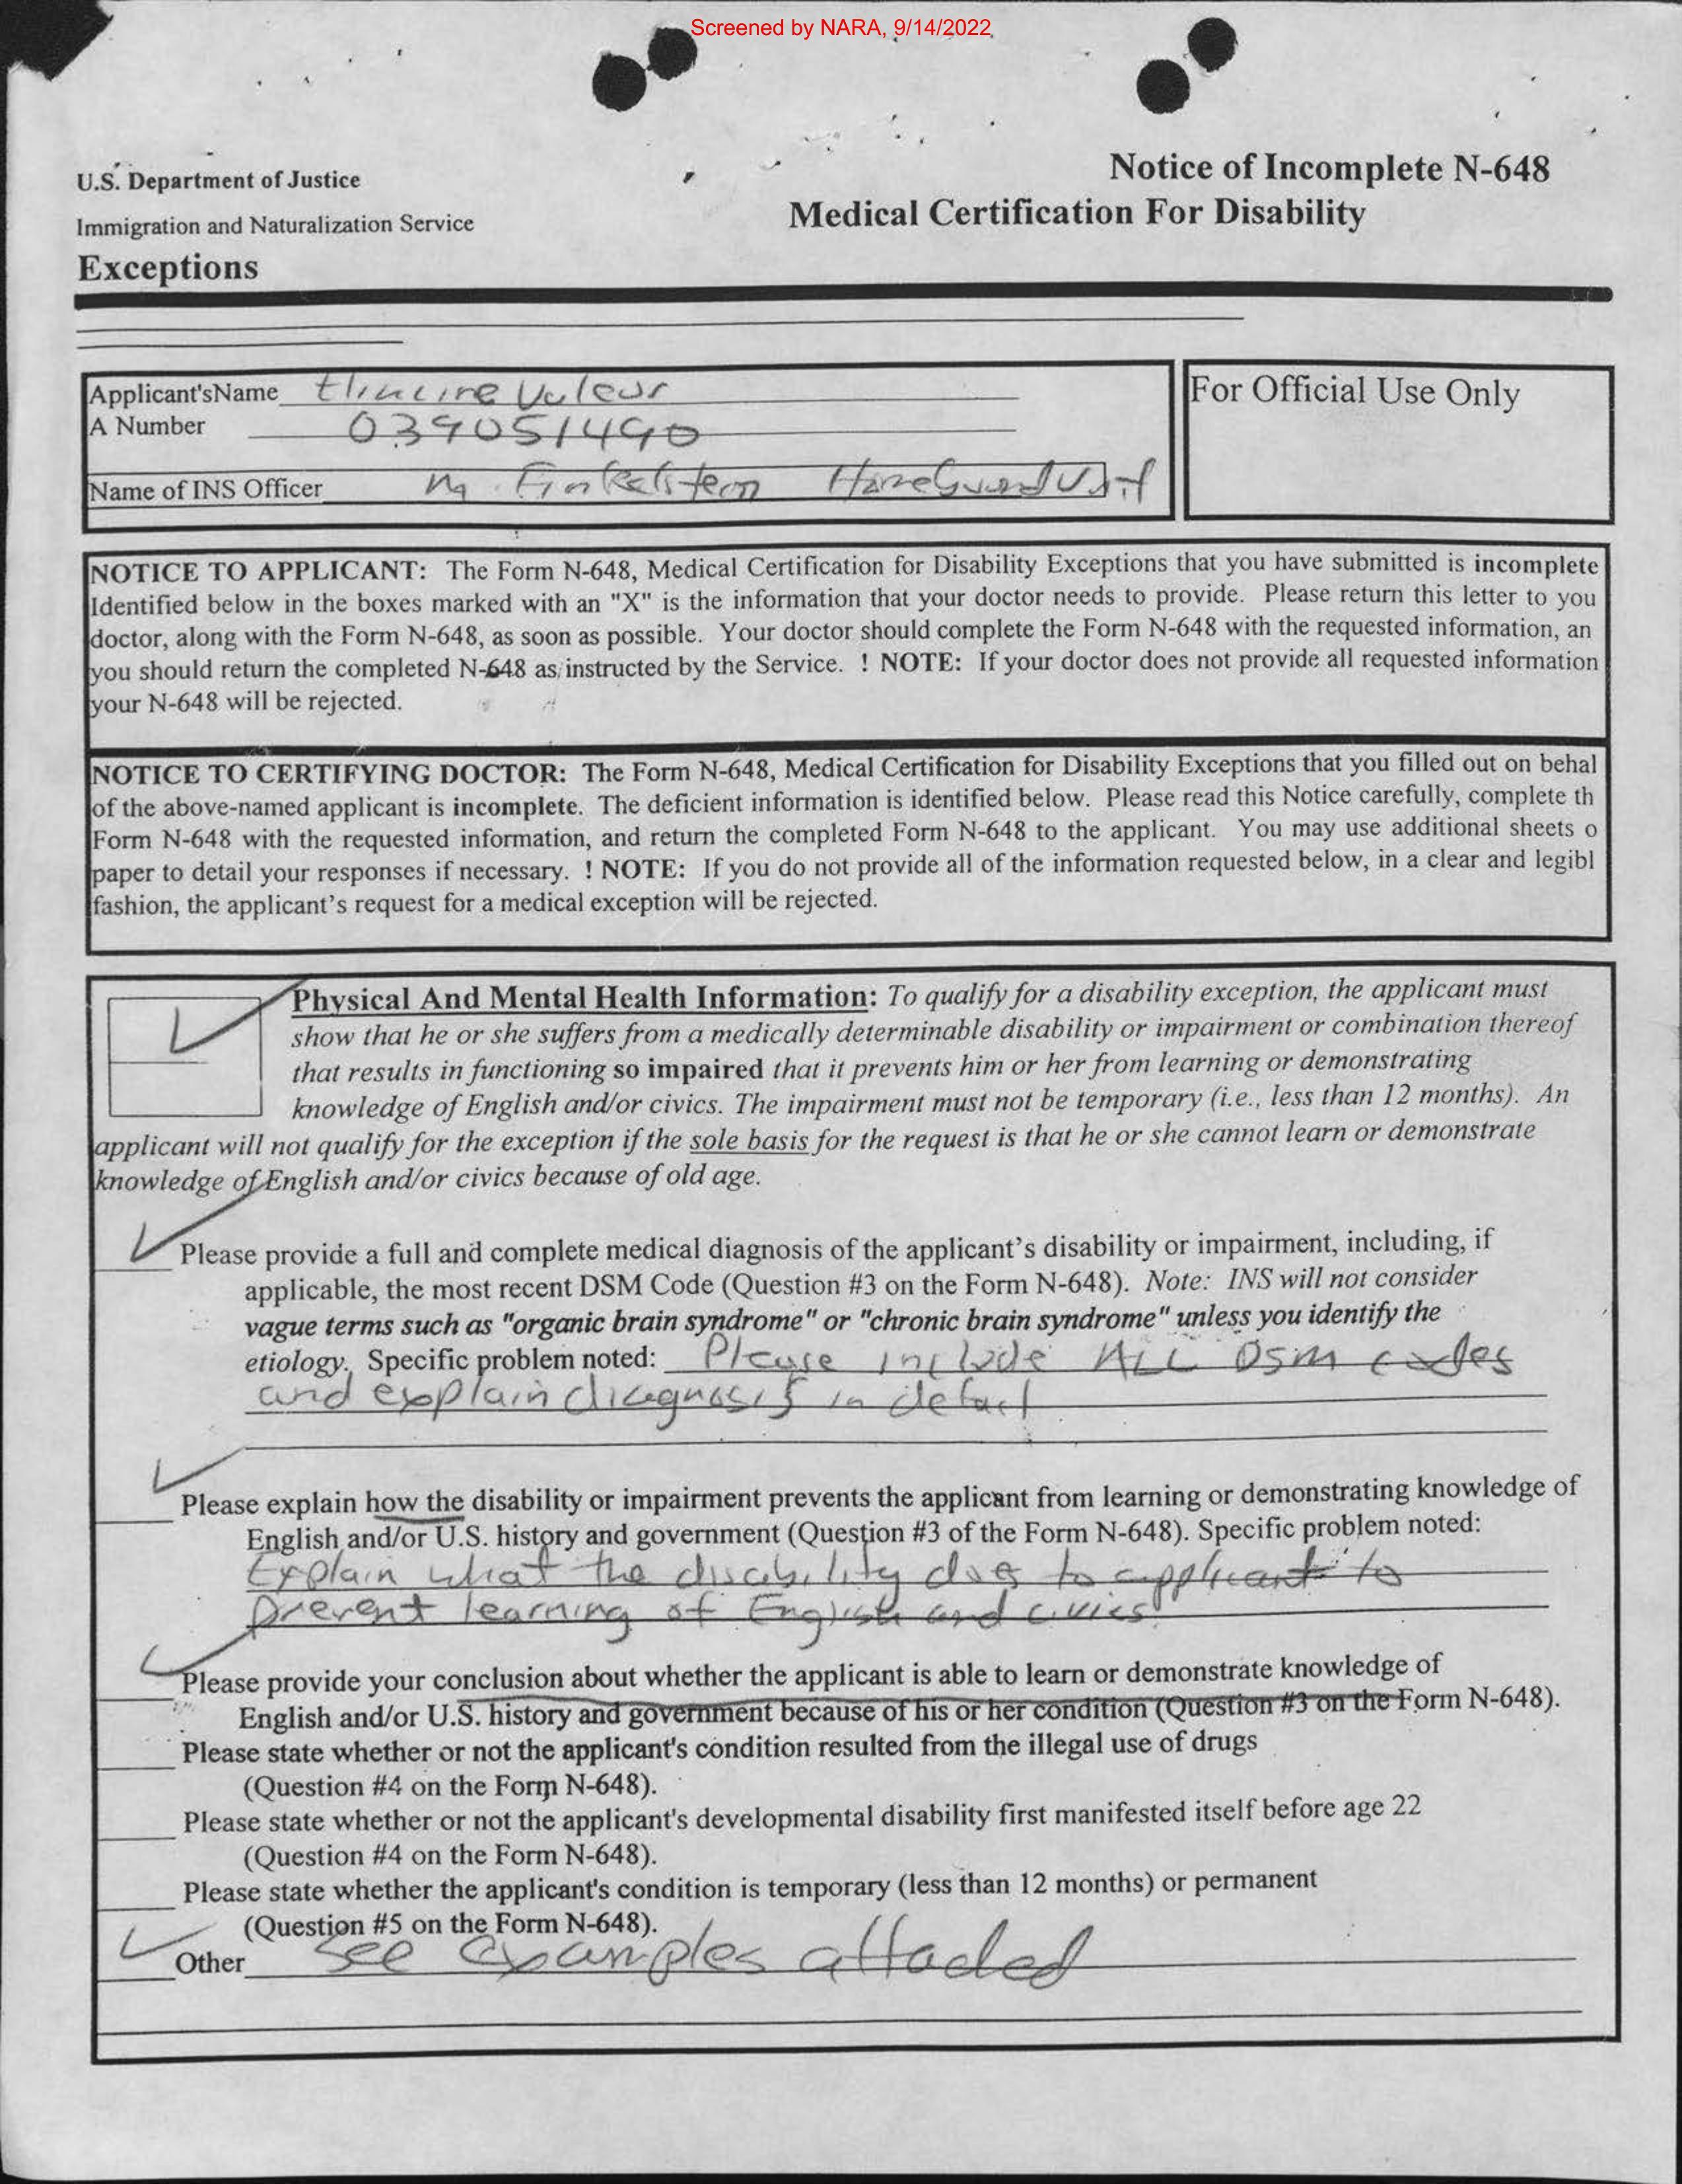 Screened by NARA, 9/14/2022
U.S. Department of Justice
Notice of Incomplete N-648
Immigration and Naturalization Service
Medical Certification For Disability
Exceptions
Applicant'sName Valeur
For Official Use Only
A Number 039051490
Name of INS Officer M. Finkelstein Unit
NOTICE TO APPLICANT: The Form N-648, Medical Certification for Disability Exceptions that you have submitted is incomplete
Identified below in the boxes marked with an "X" is the information that your doctor needs to provide. Please return this letter to you
doctor, along with the Form N-648, as soon as possible. Your doctor should complete the Form N-648 with the requested information, an
you should return the completed N-648 as instructed by the Service. ! NOTE: If your doctor does not provide all requested information
your N-648 will be rejected.
NOTICE TO CERTIFYING DOCTOR: The Form N-648, Medical Certification for Disability Exceptions that you filled out on behal
of the above-named applicant is incomplete. The deficient information is identified below. Please read this Notice carefully, complete th
Form N-648 with the requested information, and return the completed Form N-648 to the applicant. You may use additional sheets o
paper to detail your responses if necessary. ! NOTE: If you do not provide all of the information requested below, in a clear and legibl
fashion, the applicant's request for a medical exception will be rejected.
Physical And Mental Health Information: To qualify for a disability exception, the applicant must
show that he or she suffers from a medically determinable disability or impairment or combination thereof
that results in functioning so impaired that it prevents him or her from learning or demonstrating
knowledge of English and/or civics. The impairment must not be temporary (i.e., less than 12 months). An
applicant will not qualify for the exception if the sole basis for the request is that he or she cannot learn or demonstrate
knowledge of English and/or civics because of old age.
Please provide a full and complete medical diagnosis of the applicant's disability or impairment, including, if
applicable, the most recent DSM Code (Question #3 on the Form N-648). Note: INS will not consider
vague terms such as "organic brain syndrome" or "chronic brain syndrome" unless you identify the
etiology. Specific problem noted: Please include ALL DSM codes
and explain diagnosis in detail
Please explain how the disability or impairment prevents the applicant from learning or demonstrating knowledge of
English and/or U.S. history and government (Question #3 of the Form N-648). Specific problem noted:
Explain what the disability does to applicant to
prevent learning of English and civics
Please provide your conclusion about whether the applicant is able to learn or demonstrate knowledge of
English and/or U.S. history and government because of his or her condition (Question #3 on the Form N-648).
Please state whether or not the applicant's condition resulted from the illegal use of drugs
(Question #4 on the Form N-648).
Please state whether or not the applicant's developmental disability first manifested itself before age 22
(Question #4 on the Form N-648).
Please state whether the applicant's condition is temporary (less than 12 months) or permanent
(Question #5 on the Form N-648).
Other see examples attached